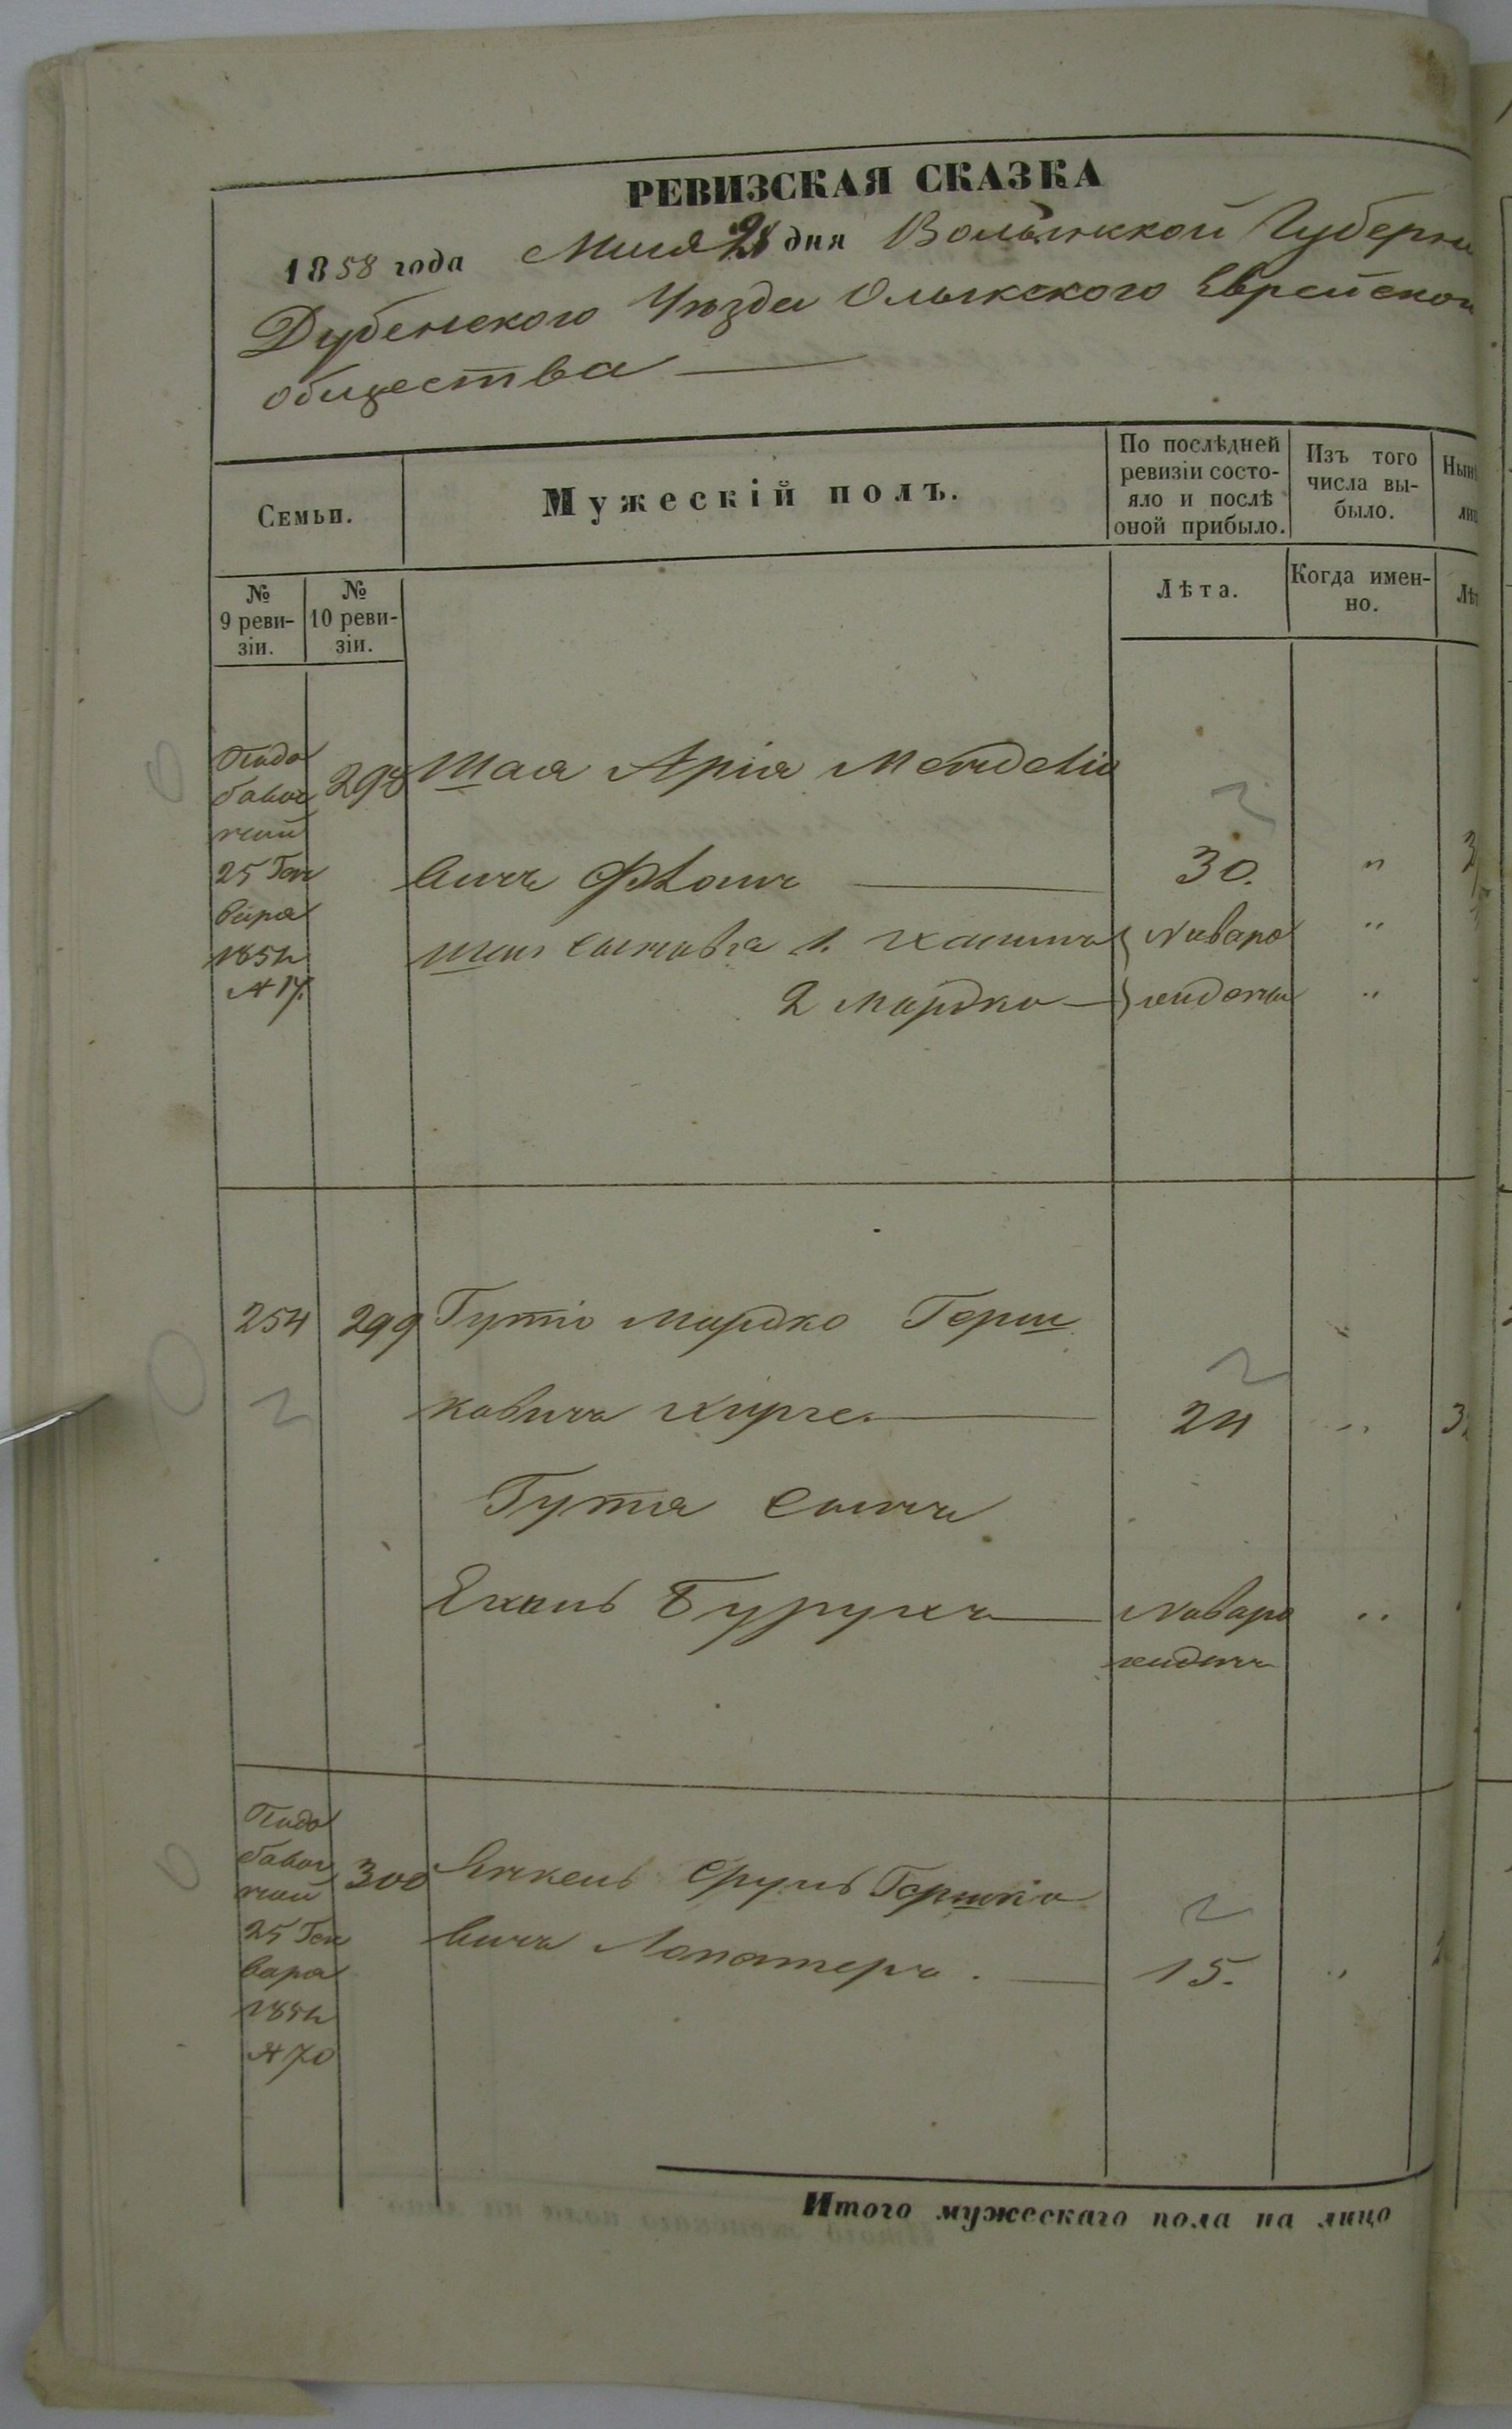 РЕВИЗСКАЯ СКАЗКА
1858 года Мая 21 дня Волынской Губерни
Дубенского Уѣзда Олыкского Еврейского
общества
Семьи.
Мужескій полъ.
По послѣдней ревизіи состояло и послѣ оной прибыло.
Изъ того числа выбыло.
Нынѣ
лиц
№ 9 ревизіи.
№ 10 ревизіи.
Лѣта.
Когда именно.
Лѣт
По до
бавоч
ной
25 Ген
варя
1852
№ 17.
298 Шая Арія Менделіо
вичъ 30. "
Шаи сыновья 1. Хаимъ новоро "
2 Мордко жденны "
254 299 Гутіо Мордко Герш
ковичъ 24 "
Гутя сынъ
Ехель Бурухъ новоро "
жденъ
По до
бавоч
ной
25 Ген
варя
1852
№ 70
300 Янкель Сруль Гершко
вичъ Лопатеръ. 15. "
Итого мужескаго пола на лицо